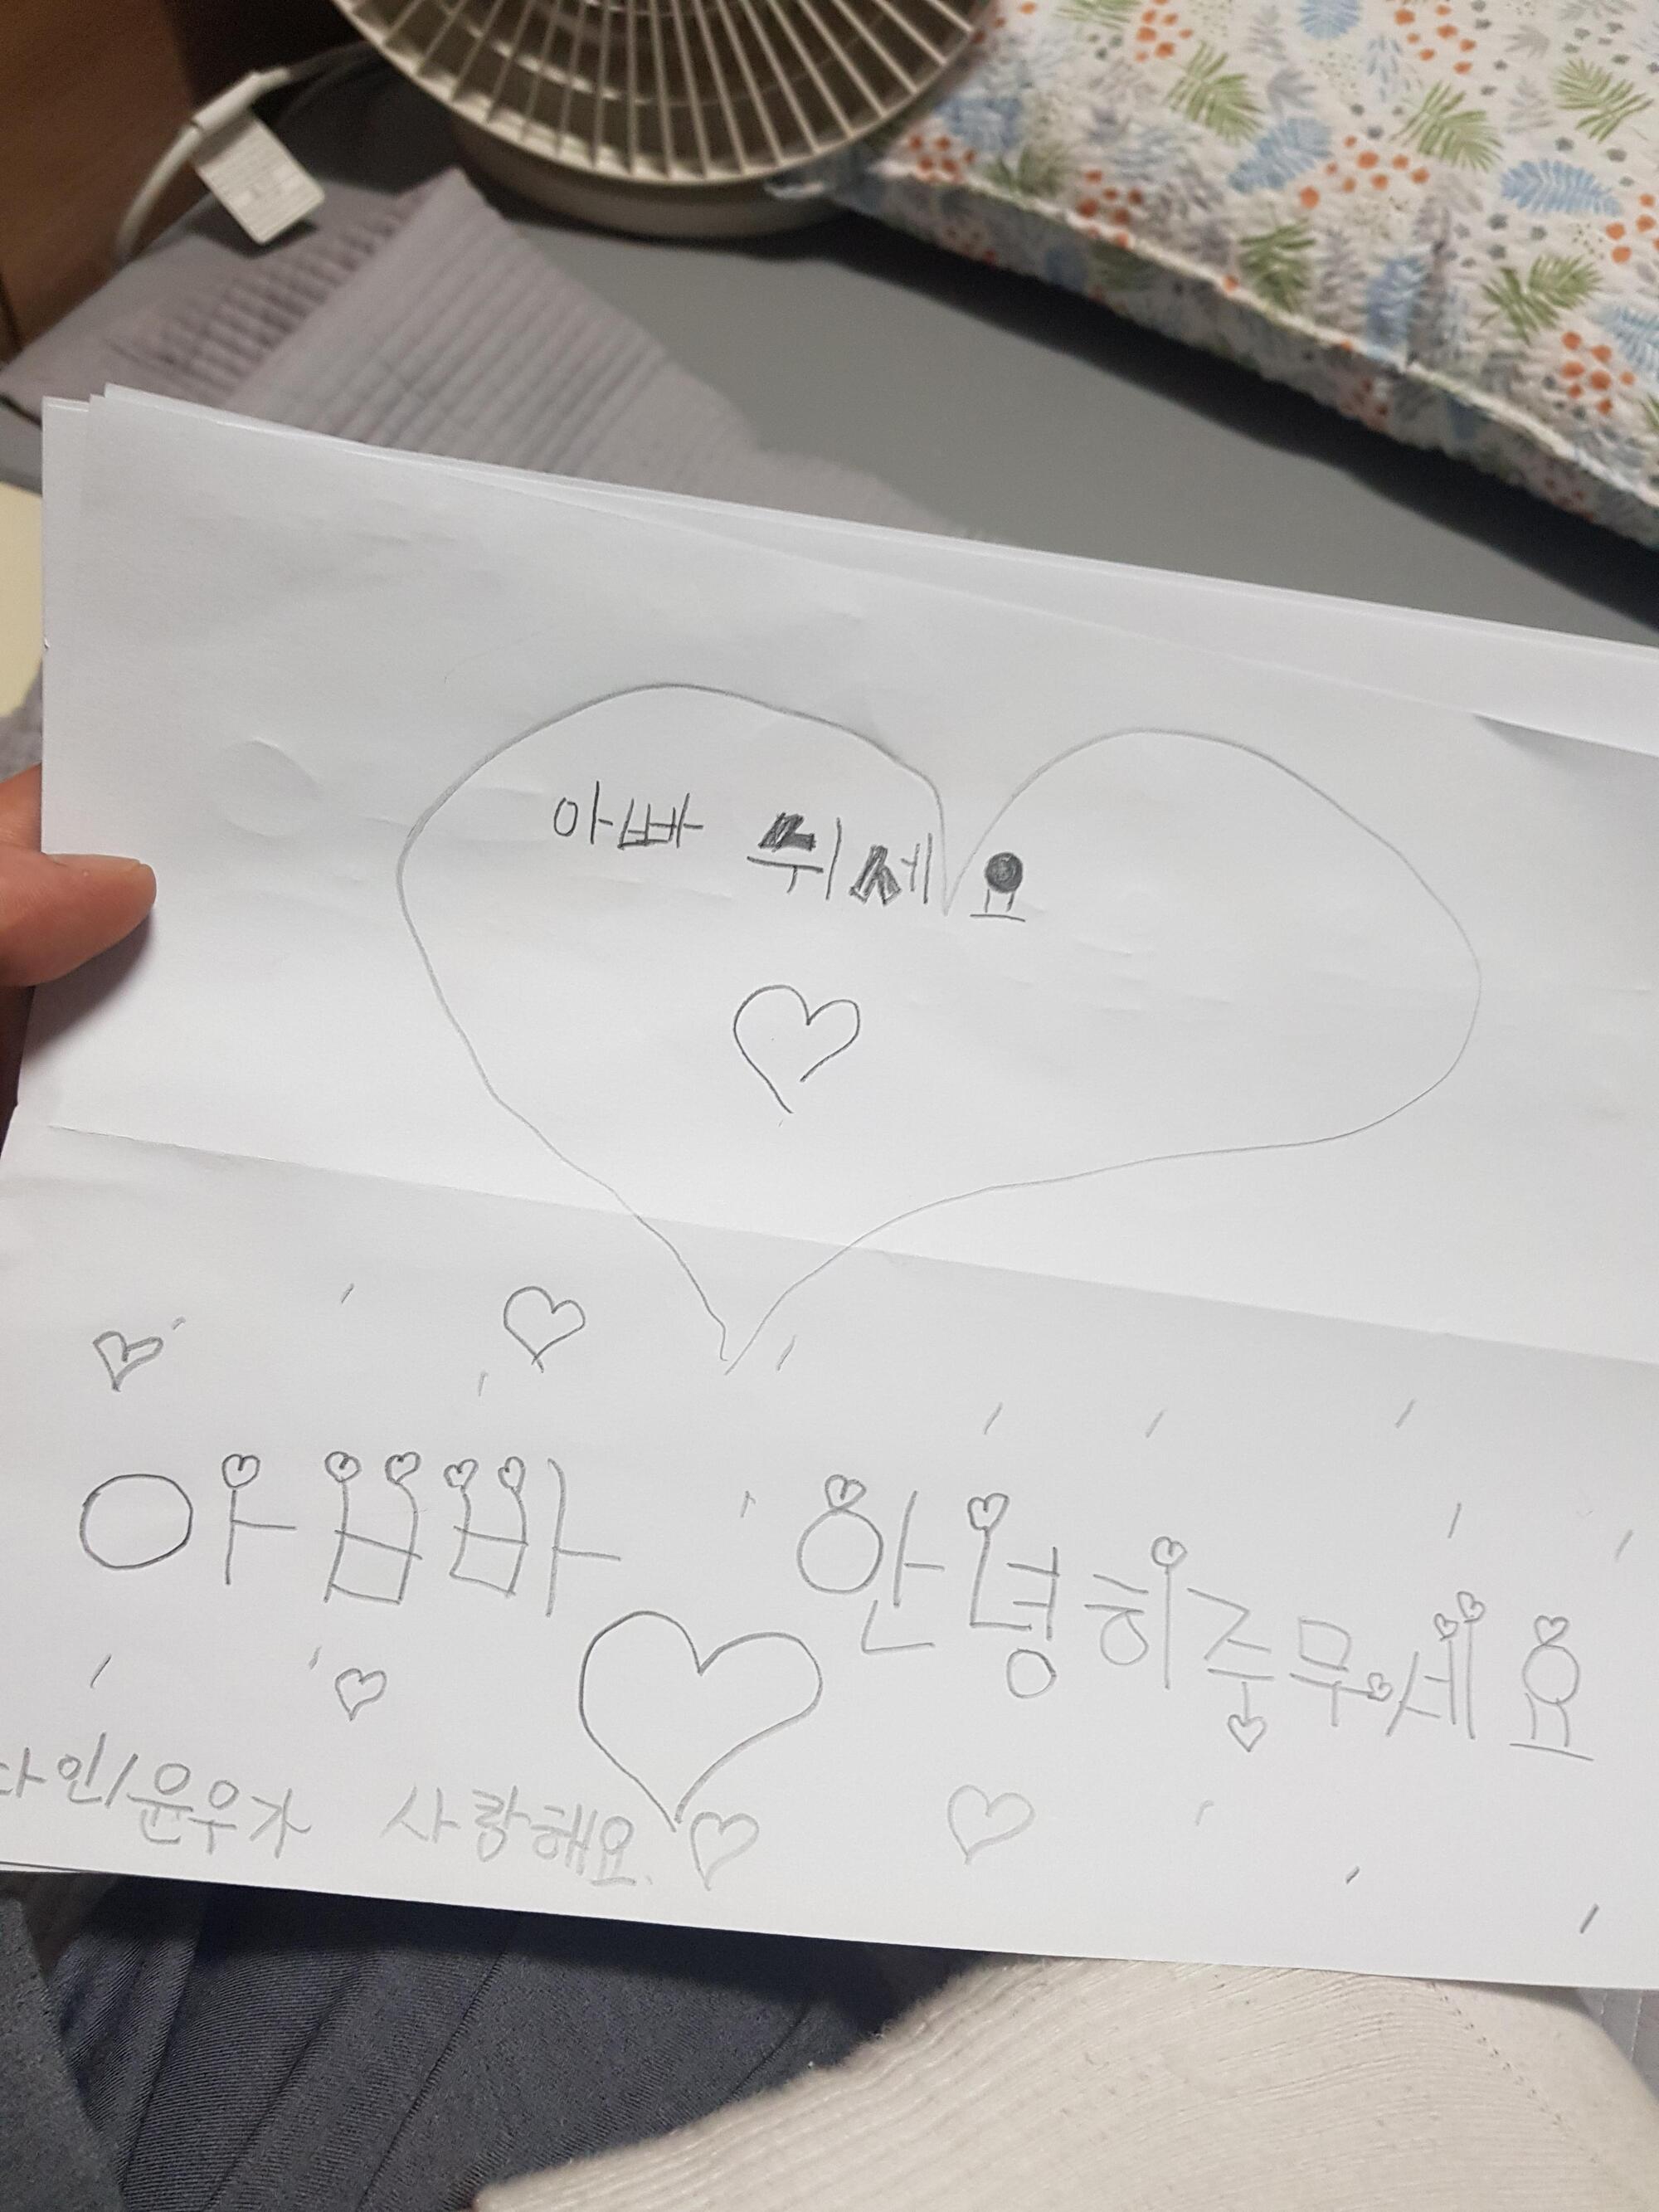 아빠 쉬세요
아빠 안녕히주무세요
다인/윤우가 사랑해요.